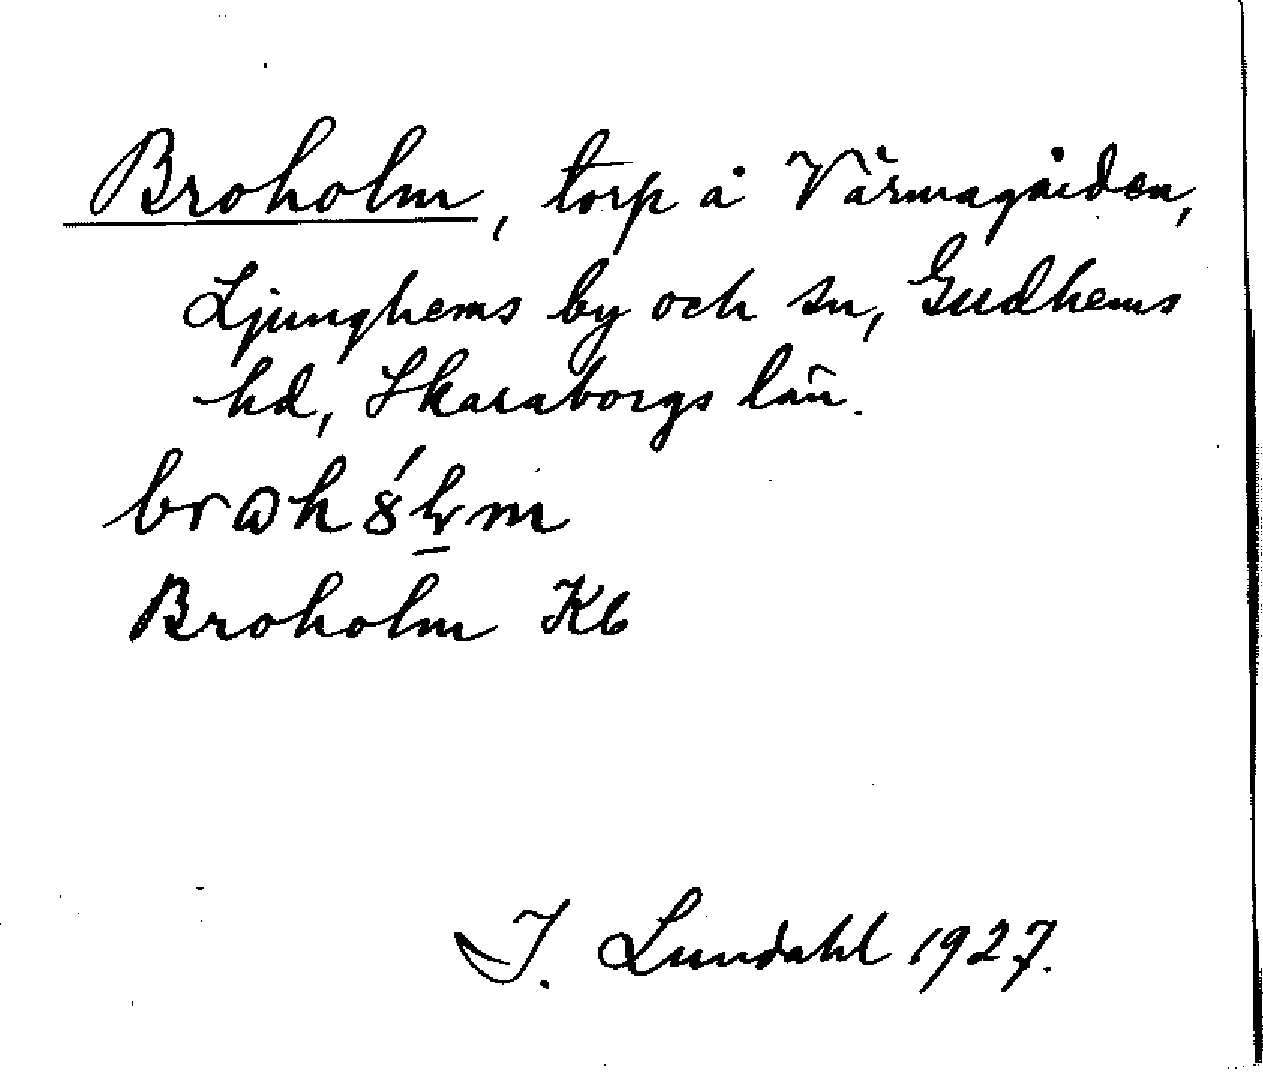 Broholm, torp å Vårmagården,
Ljunghems by och sn, Gudhems
hd, Skaraborgs län.
Broholm Kb
I. Lundahl 1927.